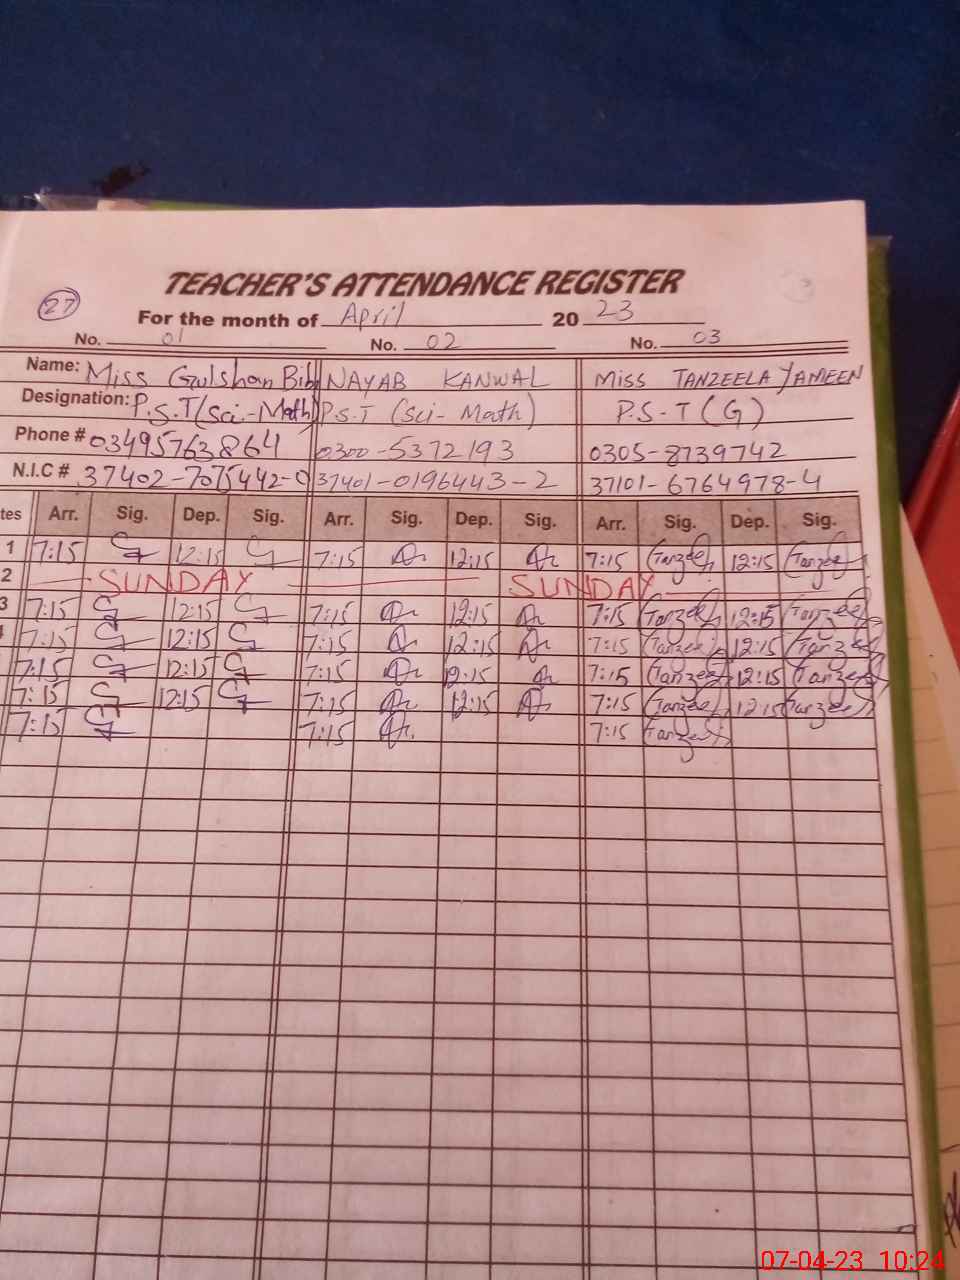 TEACHER'S ATTENDANCE REGISTER
27
For the month of April 2023
No. 01 No. 02 No. 03
Name: Miss Gulshan Bibi NAYAB KANWAL Miss TANZEELA YAMEEN
Designation: P.S.T (Sci-Math) P.S.T (Sci-Math) P.S-T (G)
Phone # 03495763864 0300-5372193 0305-8739742
N.I.C # 37402-7075442-0 37401-0196443-2 37101-6764978-4
tes Arr. Sig. Dep. Sig. Arr. Sig. Dep. Sig. Arr. Sig. Dep. Sig.
1 7:15 12:15 7:15 12:15 7:15 Tanzeel 12:15 Tanzeel
2 SUNDAY SUNDAY
3 7:15 12:15 7:15 12:15 7:15 Tanzeel 12:15 Tanzeel
7:15 12:15 7:15 12:15 7:15 Tanzeel 12:15 Tanzeel
7:15 12:15 7:15 12:15 7:15 Tanzeel 12:15 Tanzeel
7:15 12:15 7:15 12:15 7:15 Tanzeel 12:15 Tanzeel
7:15 7:15 7:15 Tanzeel
07-04-23 10:24